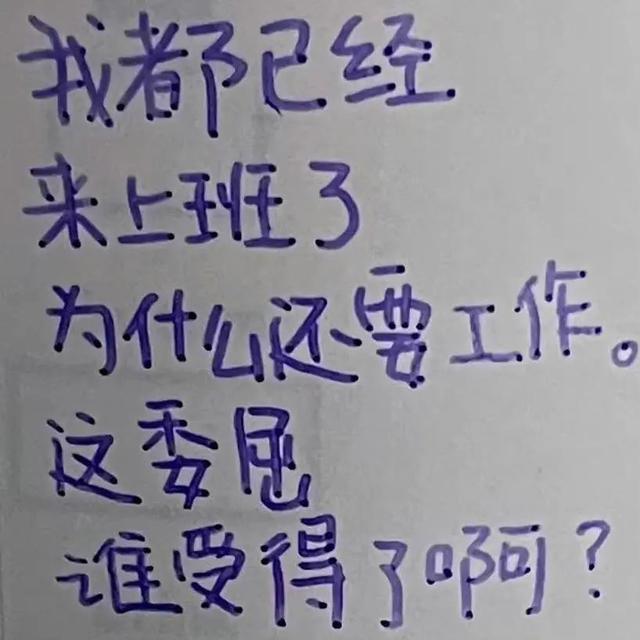 我都已经
来上班了
为什么还要工作。
这委屈
谁受得了啊?